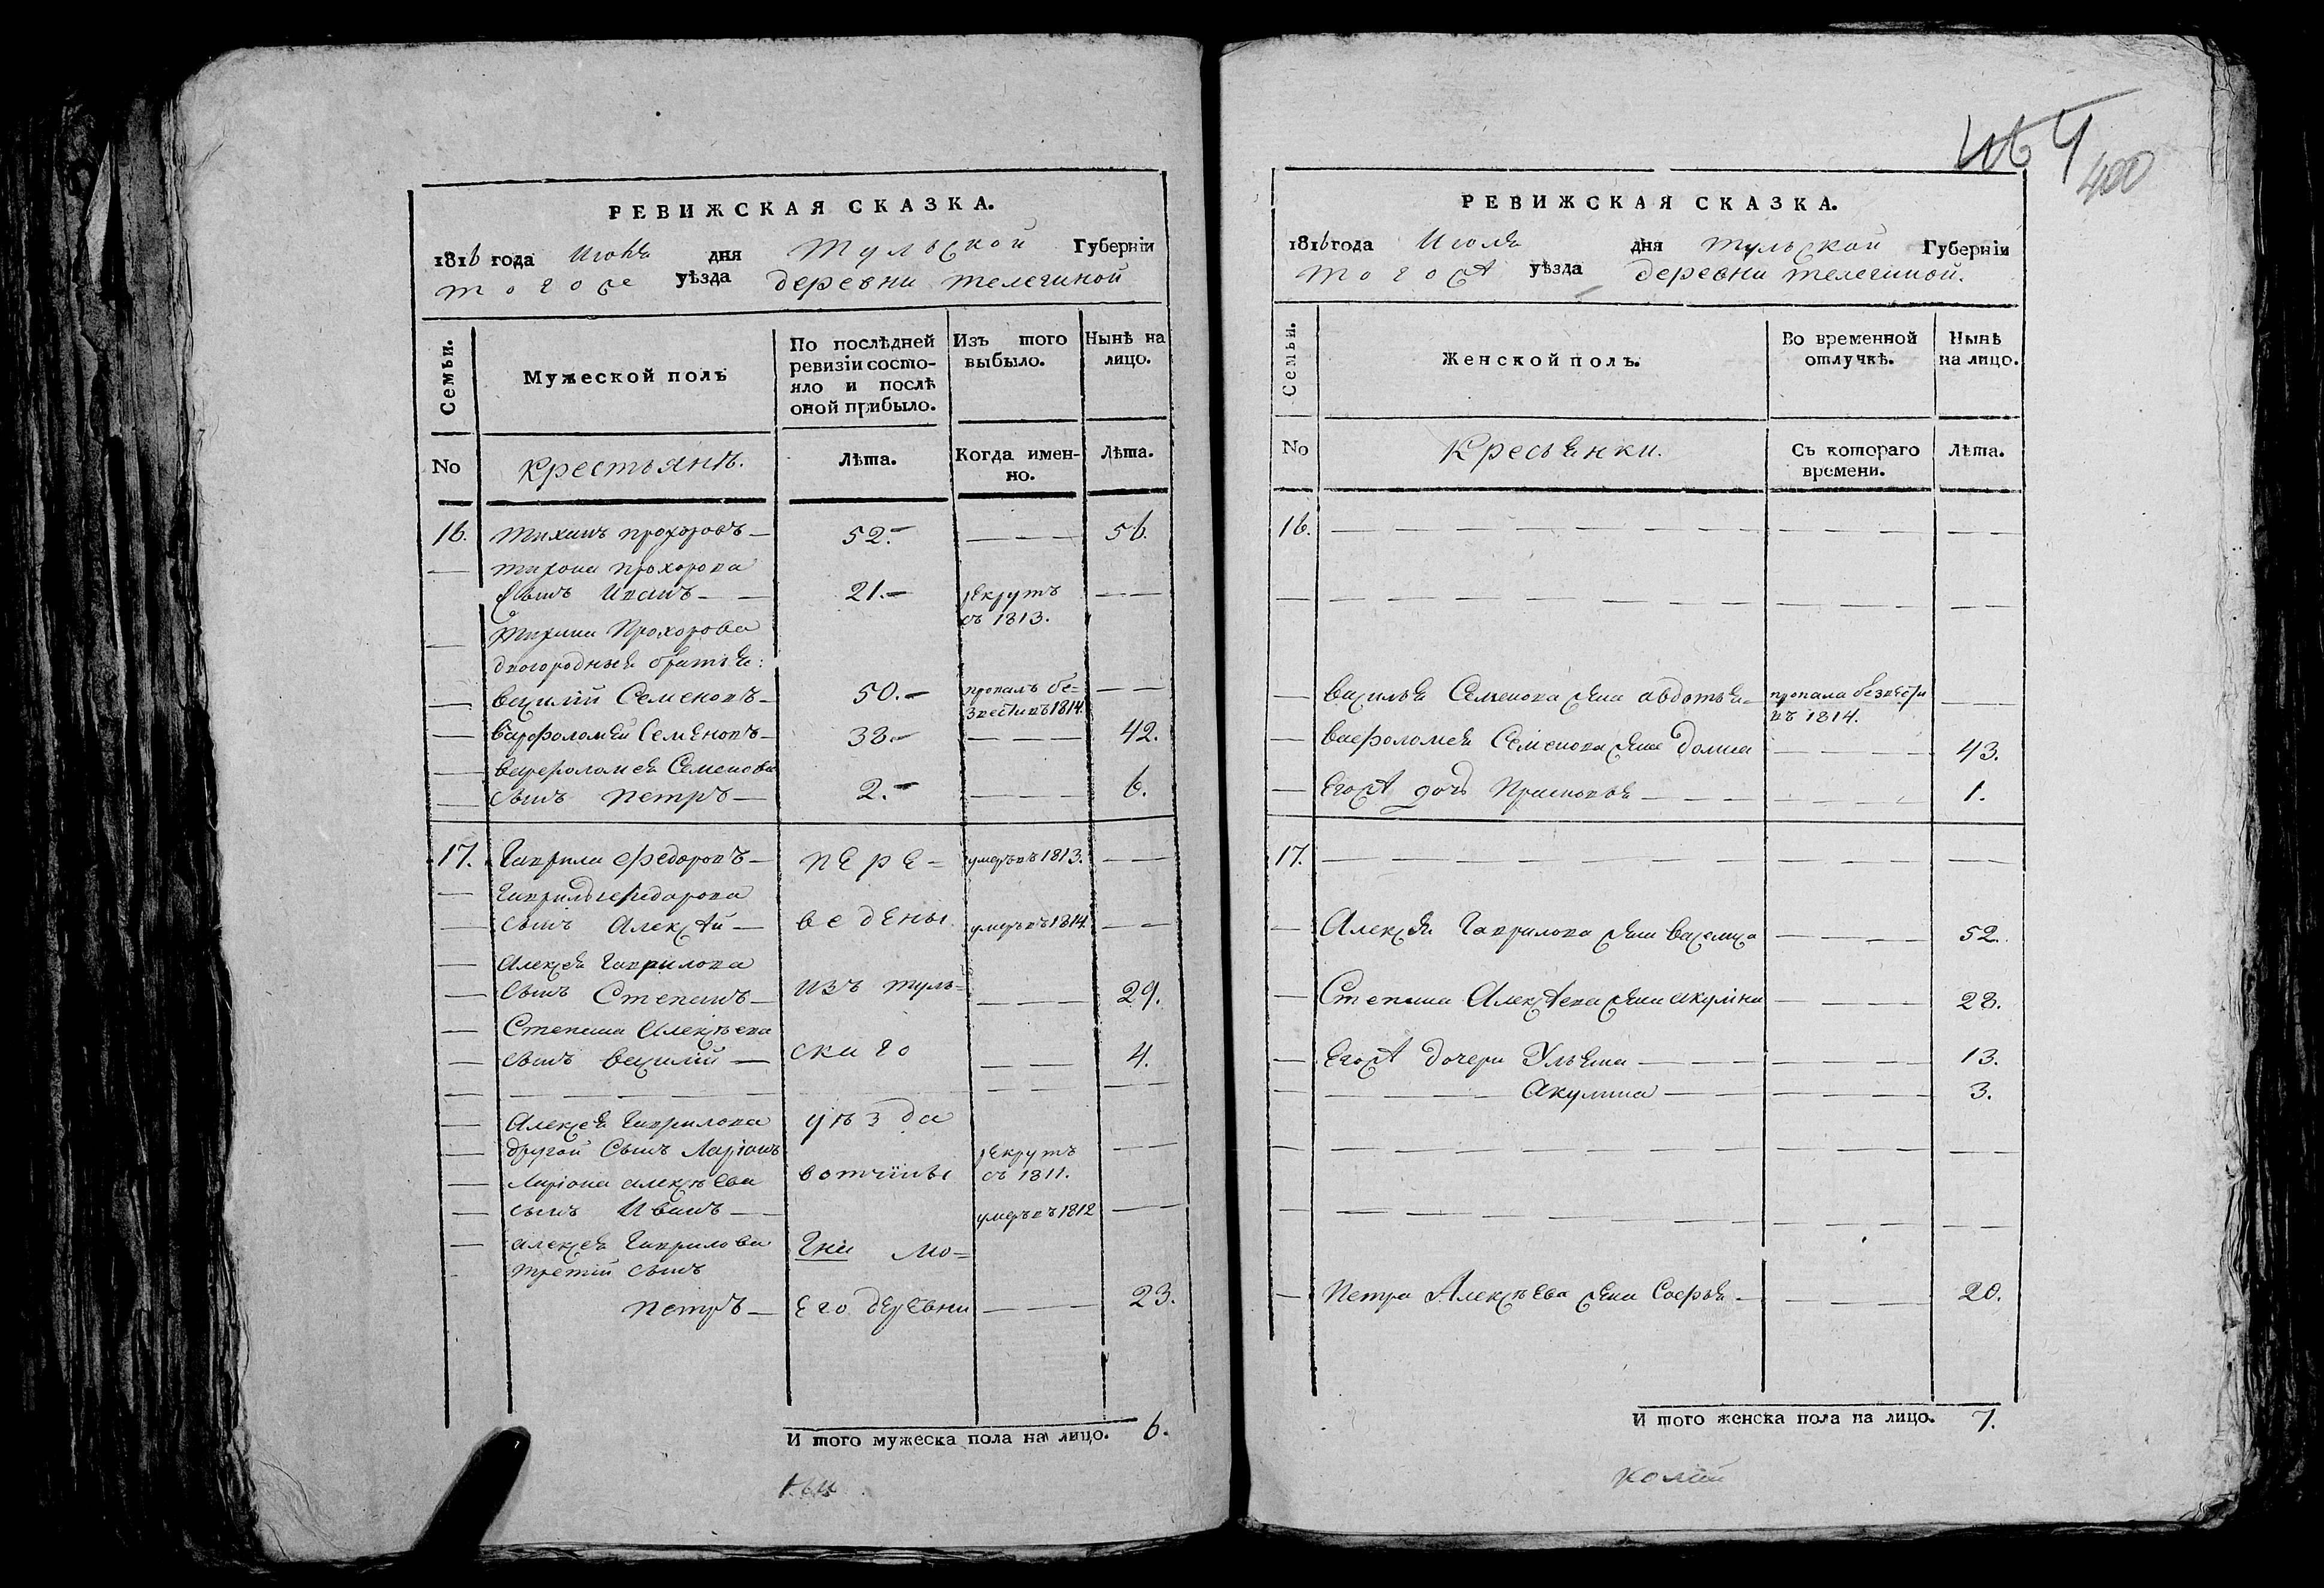 РЕВИЖСКАЯ СКАЗКА.
1816 года Июня дня Тульской Губернїи
тогоже уѣзда деревни телегиной
Семьи.
Мужеской полъ
По послѣдней
ревизїи состо-
яло и послѣ
оной прибыло.
Изъ того
выбыло.
Нынѣ на
лицо.
No
крестьянѣ.
Лѣта.
Когда имен-
но.
Лѣта.
16. тиханъ прохоровъ — 52. — — — 56.
— тихона прохорова
сынъ Иванъ — — 21. — рекрутъ — —
съ 1813.
— Тихона Прохорова
двоюродныя братья:
— василий Семеновъ — 50. — пропалъ бе= — —
звести въ 1814.
— варфоломей Семеновъ — 38. — — — 42.
— варфоломея Семенова
— сынъ петръ — 2. — — — 6.
17. Гаврила федоровъ — пере= умеръ въ 1813. — —
— Гаврилы федорова
— сынъ Алексѣй — ведены умеръ въ 1814. — —
— Алексея Гаврилова
— сынъ Степанъ — изъ туль= — — — 29.
— Степана Алексѣева
— сынъ василий — скаго — — 4.
— — — — — — — — — —
— Алексея Гаврилова уѣзда
— другой сынъ Ларїонъ рекрутъ — —
— Ларїона алексѣева вотчины съ 1811.
— сынъ Иванъ — — умеръ въ 1812 — —
— алексея Гаврилова Гна мо=
- третий сынъ
петръ — его деревни — — — 23.
И того мужеска пола на лицо. 6.
400
РЕВИЖСКАЯ СКАЗКА.
1816 года Июля дня тульской Губернїи
тогожъ уѣзда деревни телегиной.
Семьи.
Женской полъ.
Во временной
отлучкѣ.
Нынѣ
на лицо.
No
Кресьянки.
Съ котораго
времени.
Лѣта.
16. — — — — — — — — — — —
— — — — — — — — — — —
— василья Семенова жена авдотья — пропала безвести — —
въ 1814.
— варфоломея Семенова жена Домна — — — 43.
— Егожъ дочь Прасковья — — — — — — 1.
17. — — — — — — — — — — —
— Алексея Гаврилова жена василиса — — — 52.
— Степана Алексѣева жена акулина — — — 28.
— Егожъ дочери Ульяна — — — — — — 13.
— — — — Акулина — — — — — 3.
— — — — — — — — — — —
— — — — — — — — — — —
— Петра Алексѣева жена Софья — — — — 20.
И того женска пола на лицо. 7.